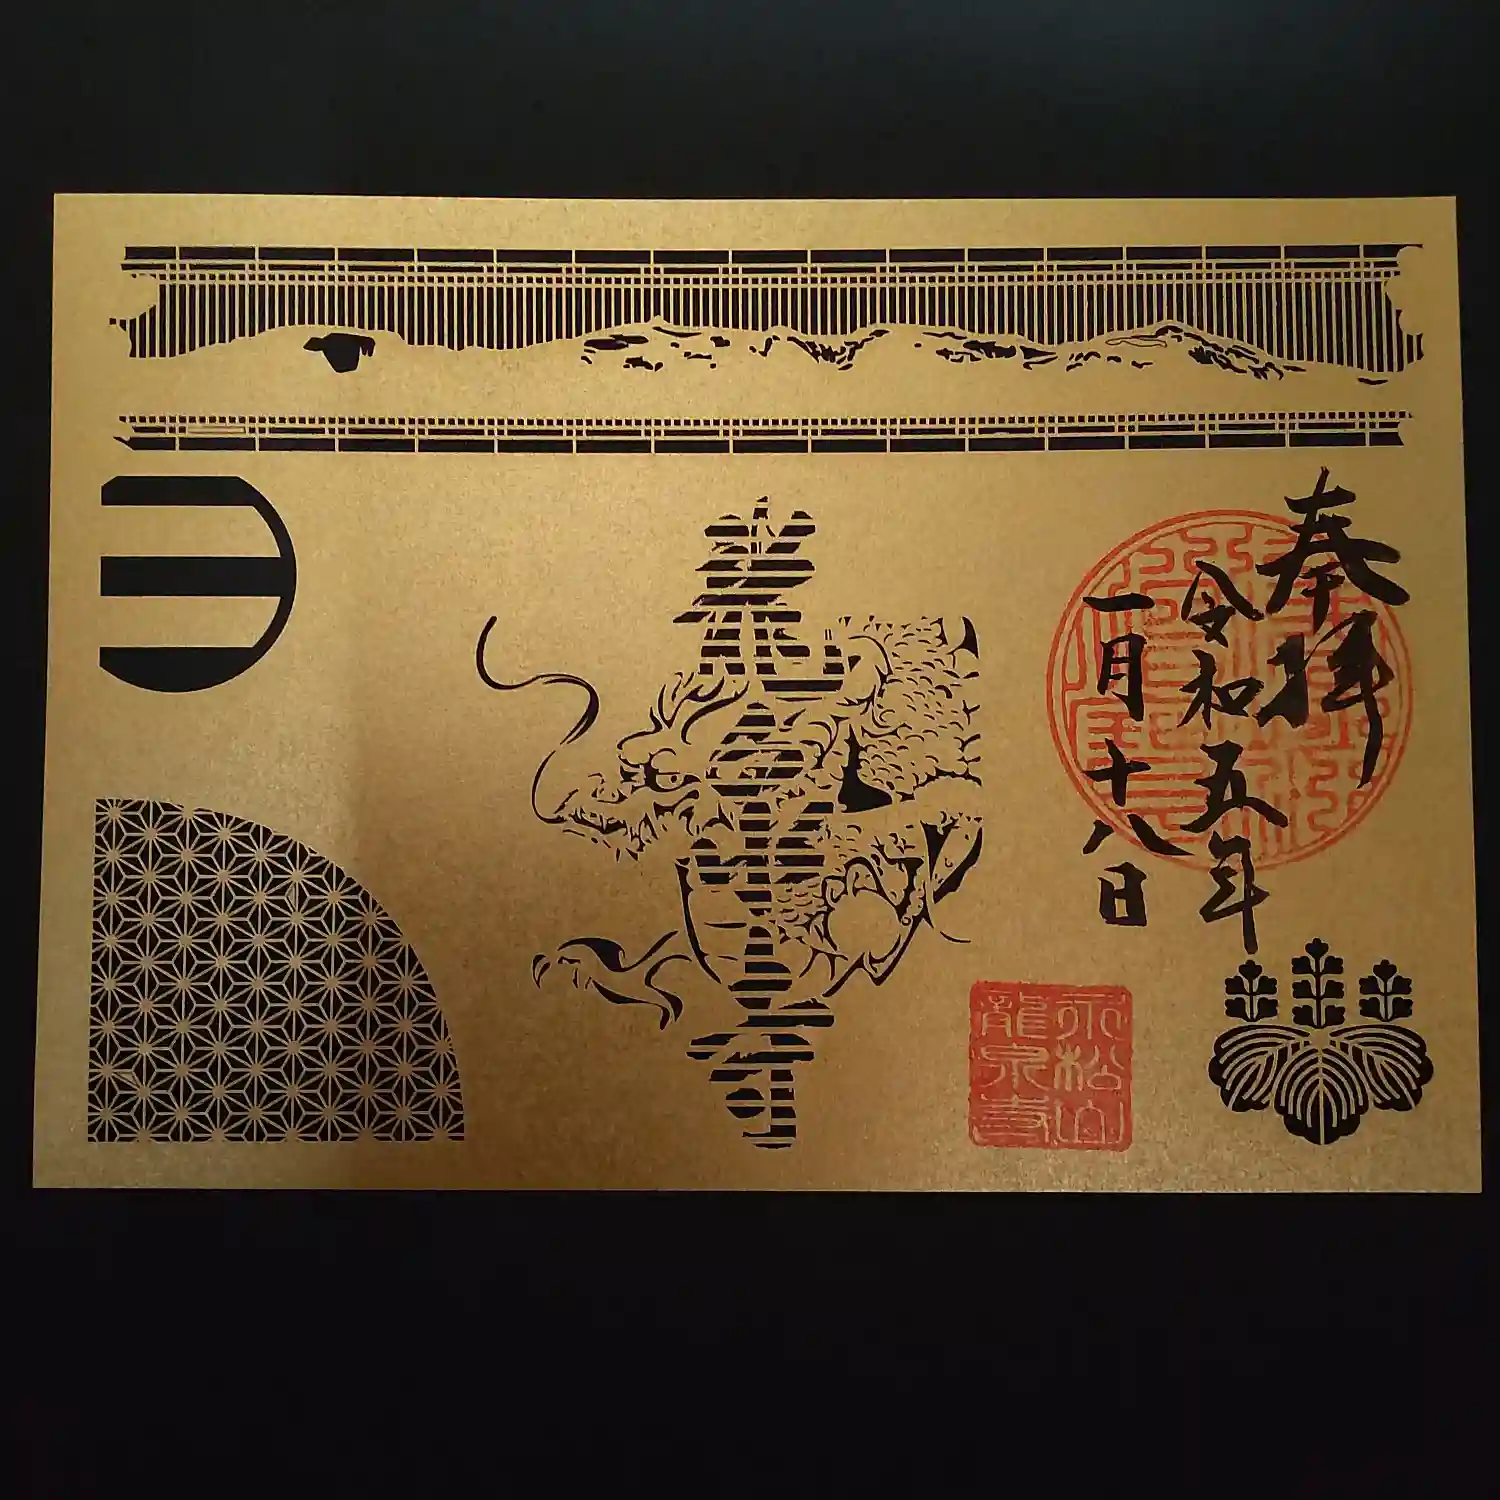 奉拝
令和五年
一月十八日
龍泉寺
永松山
龍泉寺